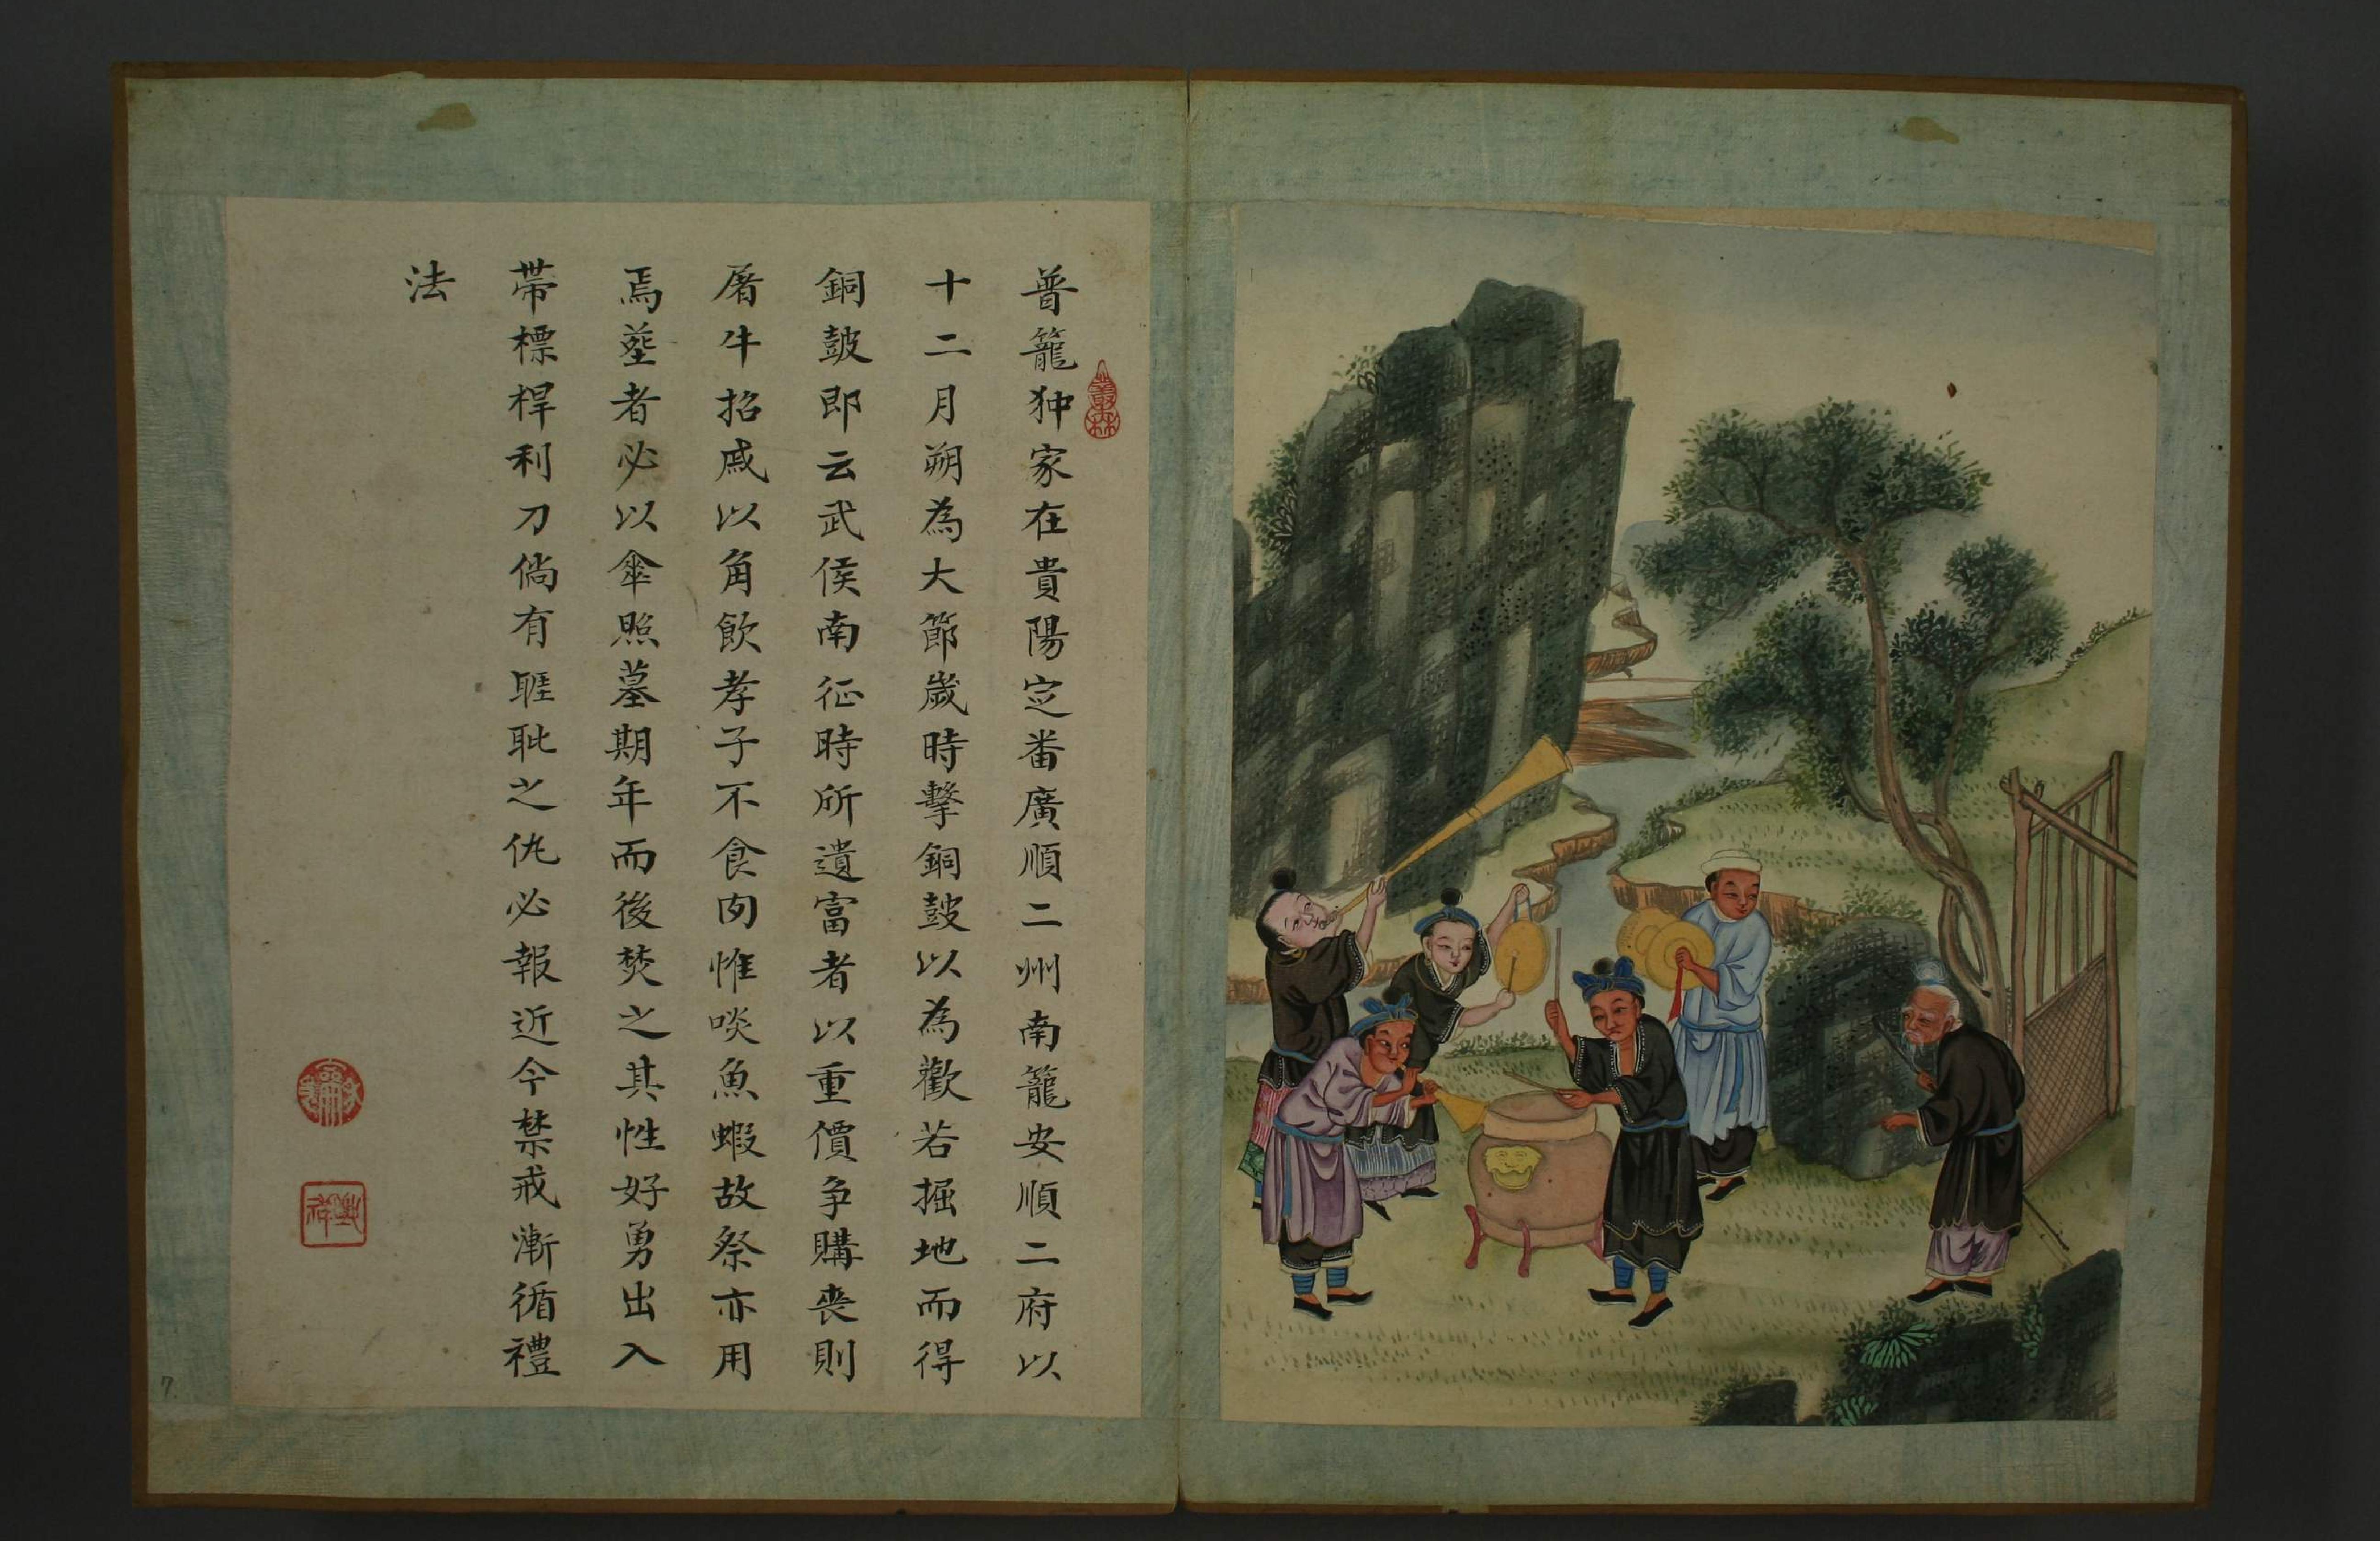 普籠狆家在貴陽定番廣順二州南籠安順二府以
十二月朔為大節歲時擊銅鼓以為歡若掘地而得
銅鼓即云武侯南征時所遺富者以重價争購喪則
屠牛招戚以角飲孝子不食肉惟啖魚蝦故祭亦用
焉塟者必以傘照墓期年而後焚之其性好勇出入
帶標桿利刀倘有睚眦之仇必報近今禁戒漸循禮
法
叢林
7.